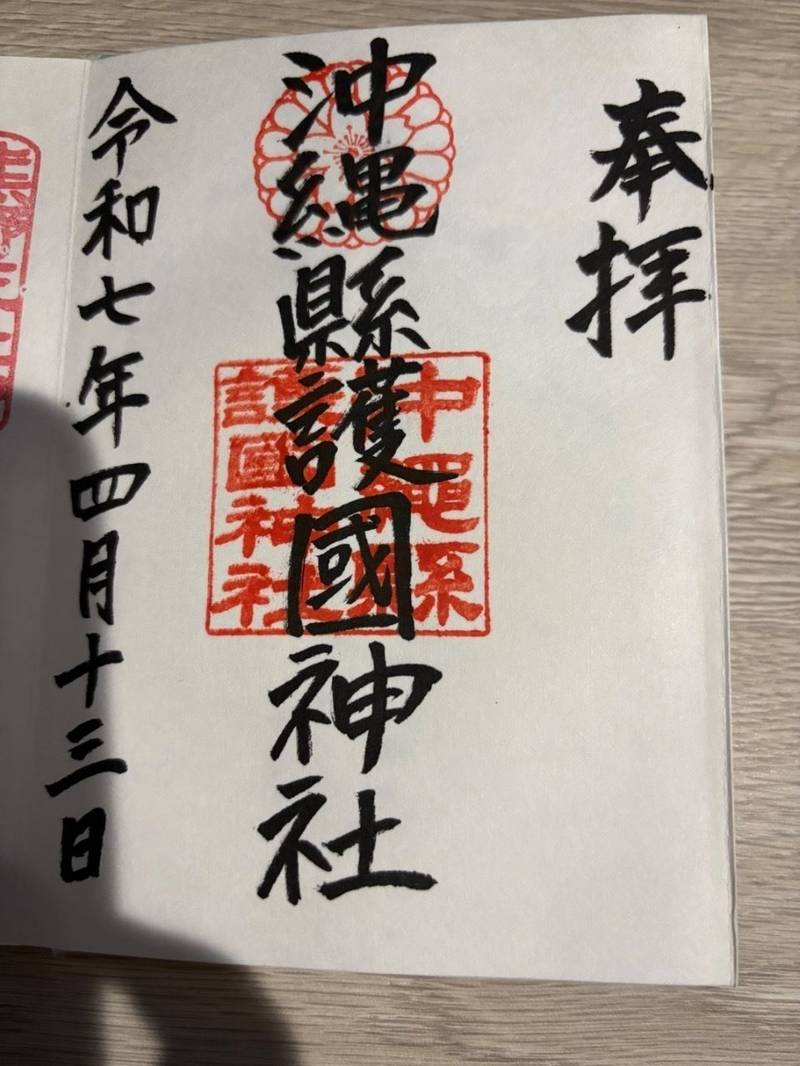 奉拝
沖縄縣護國神社
沖縄縣
護國神社
令和七年四月十三日